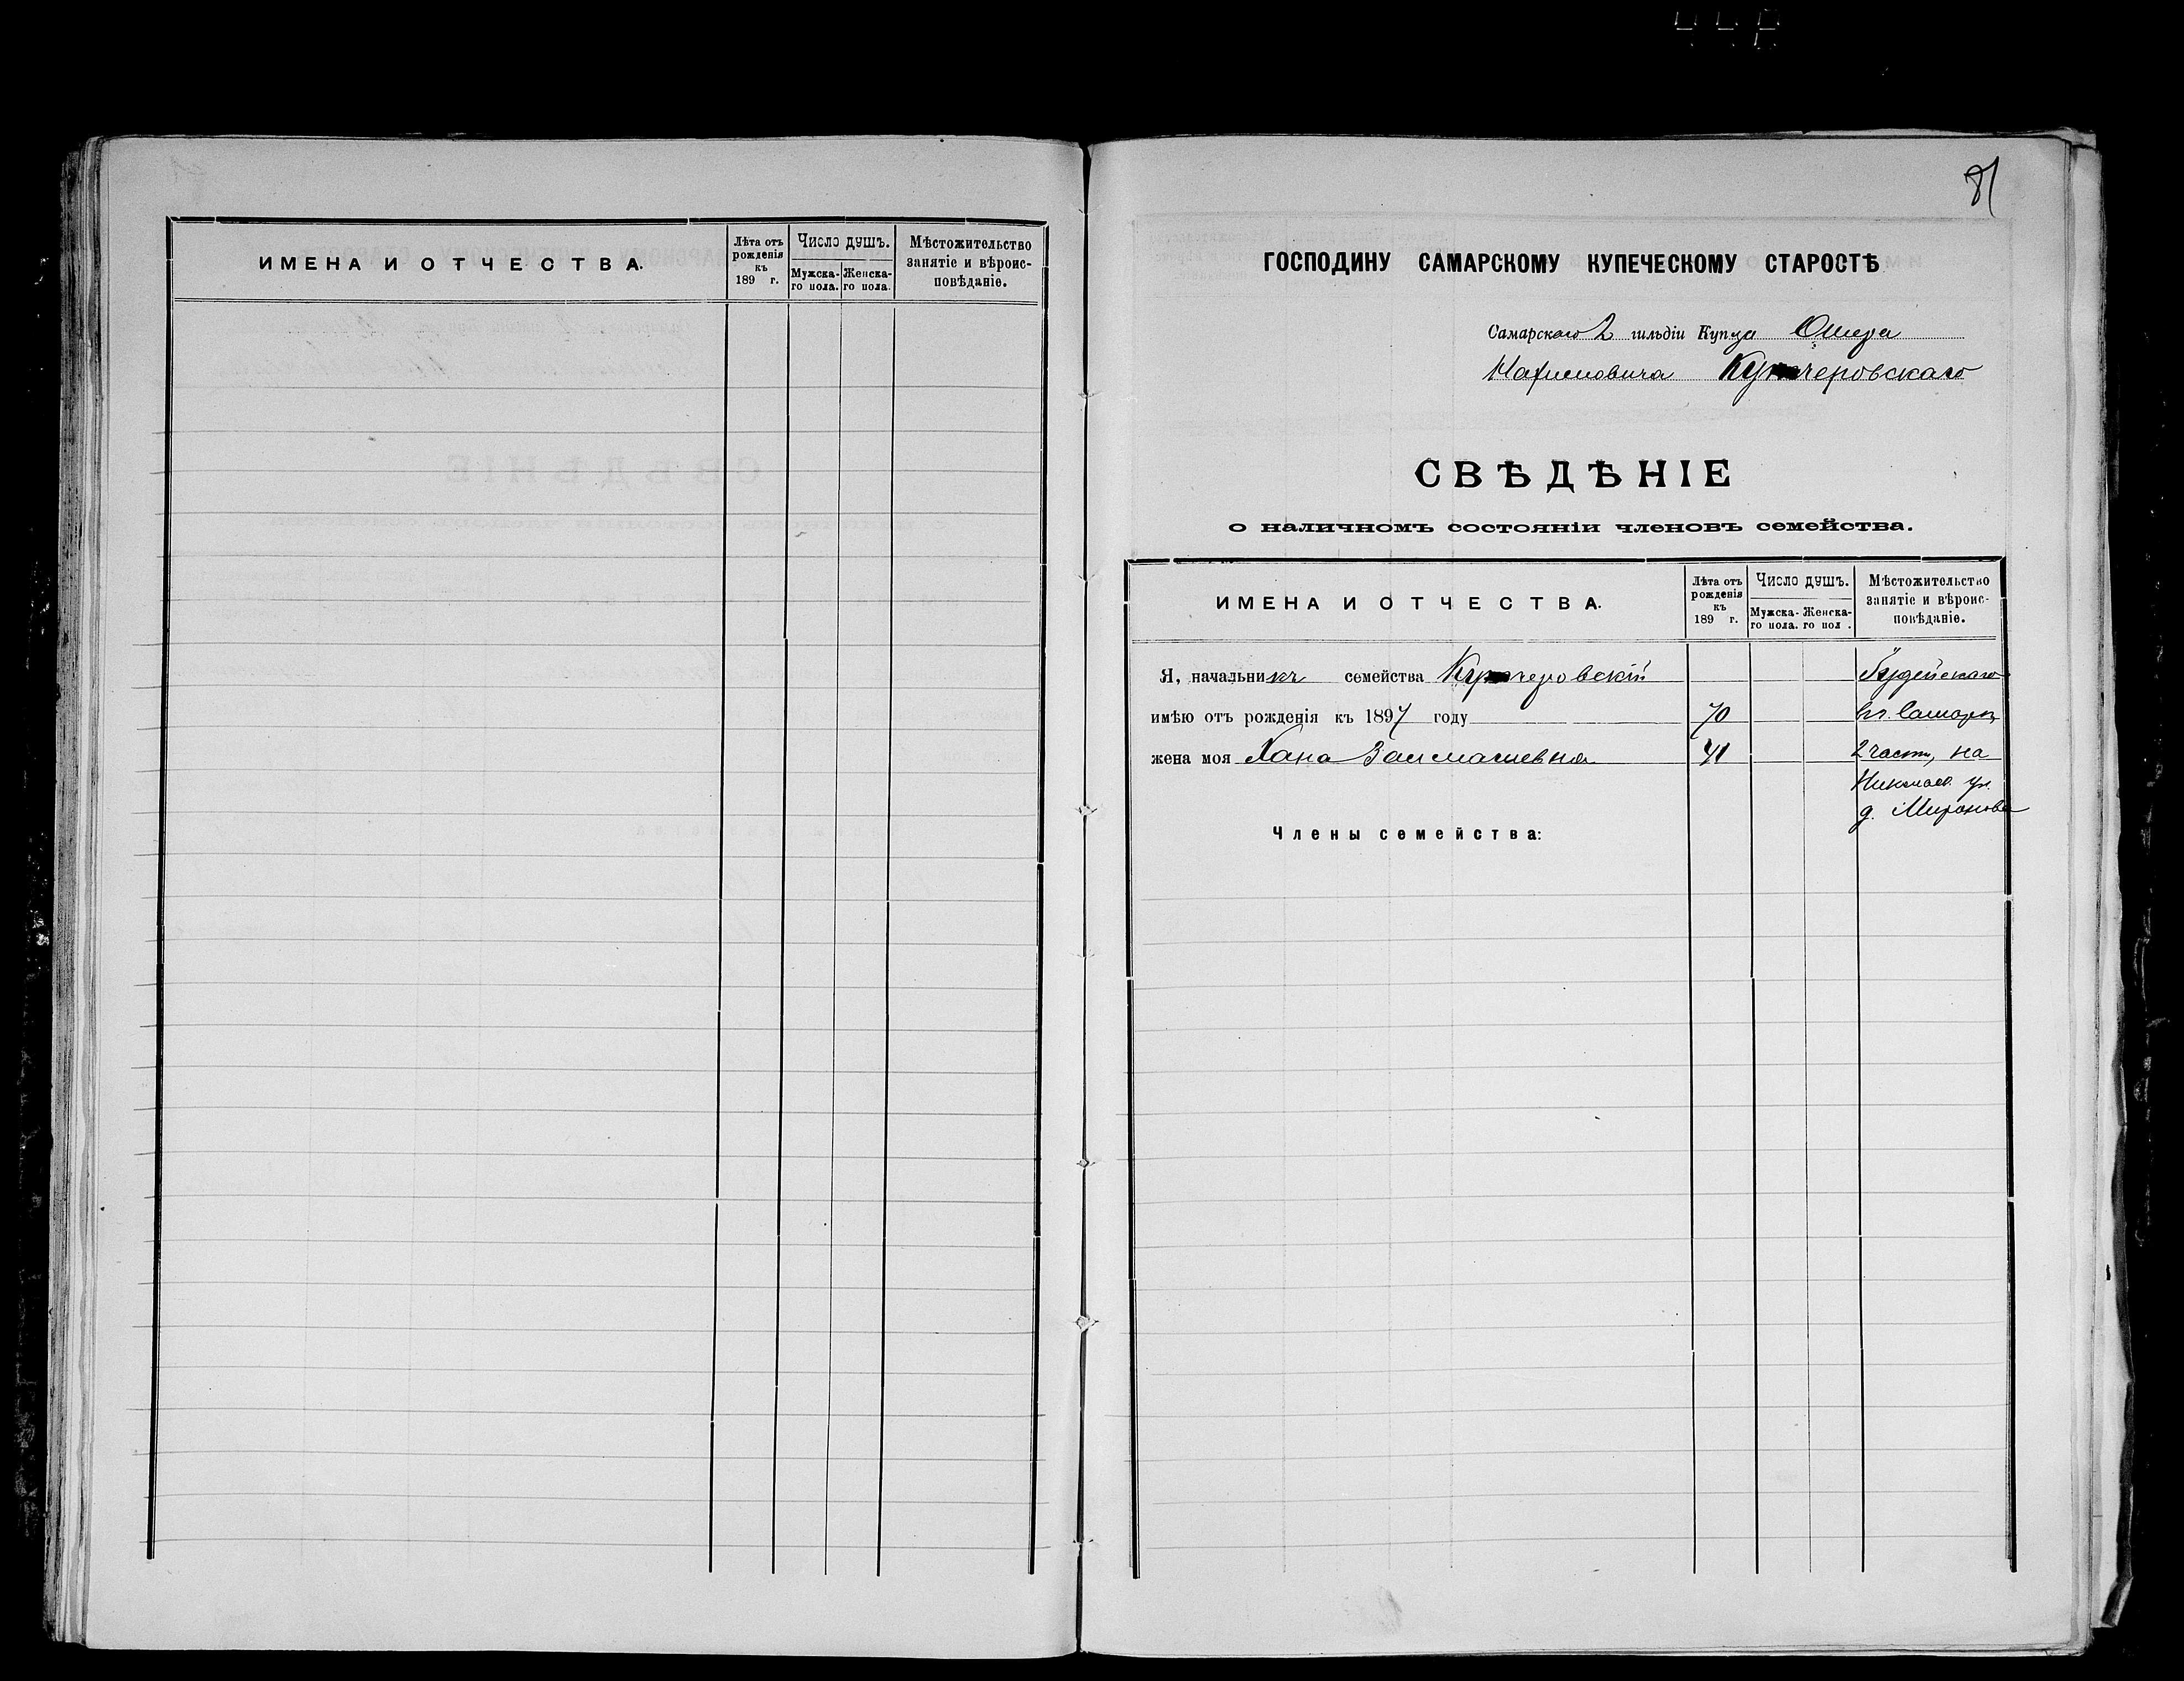 ИМЕНА И ОТЧЕСТВА.
Лѣта отъ рожденія къ 189 г.
Число душъ.
Мужска- Женска-
го пола. го пола.
Мѣстожительство
занятіе и вѣроис-
повѣданіе.
81
ГОСПОДИНУ САМАРСКОМУ КУПЕЧЕСКОМУ СТАРОСТѢ
Самарскаго 2 гильдіи Купца Ошера
Нахимовича Кучеровскаго
СВѢДѢНІЕ
о наличномъ состояніи членовъ семейства.
ИМЕНА И ОТЧЕСТВА.
Лѣта отъ рожденія къ 189 г.
Число душъ.
Мужска- Женска-
го пола. го пол .
Мѣстожительство
занятіе и вѣроис-
повѣданіе.
Я, начальникъ семейства Кучеровскій Іудейскаго
имѣю отъ рожденія къ 1897 году 70 Самара
жена моя Хана 41 2 части, на
Николаев. ул.
д. Миронова
Члены семейства: